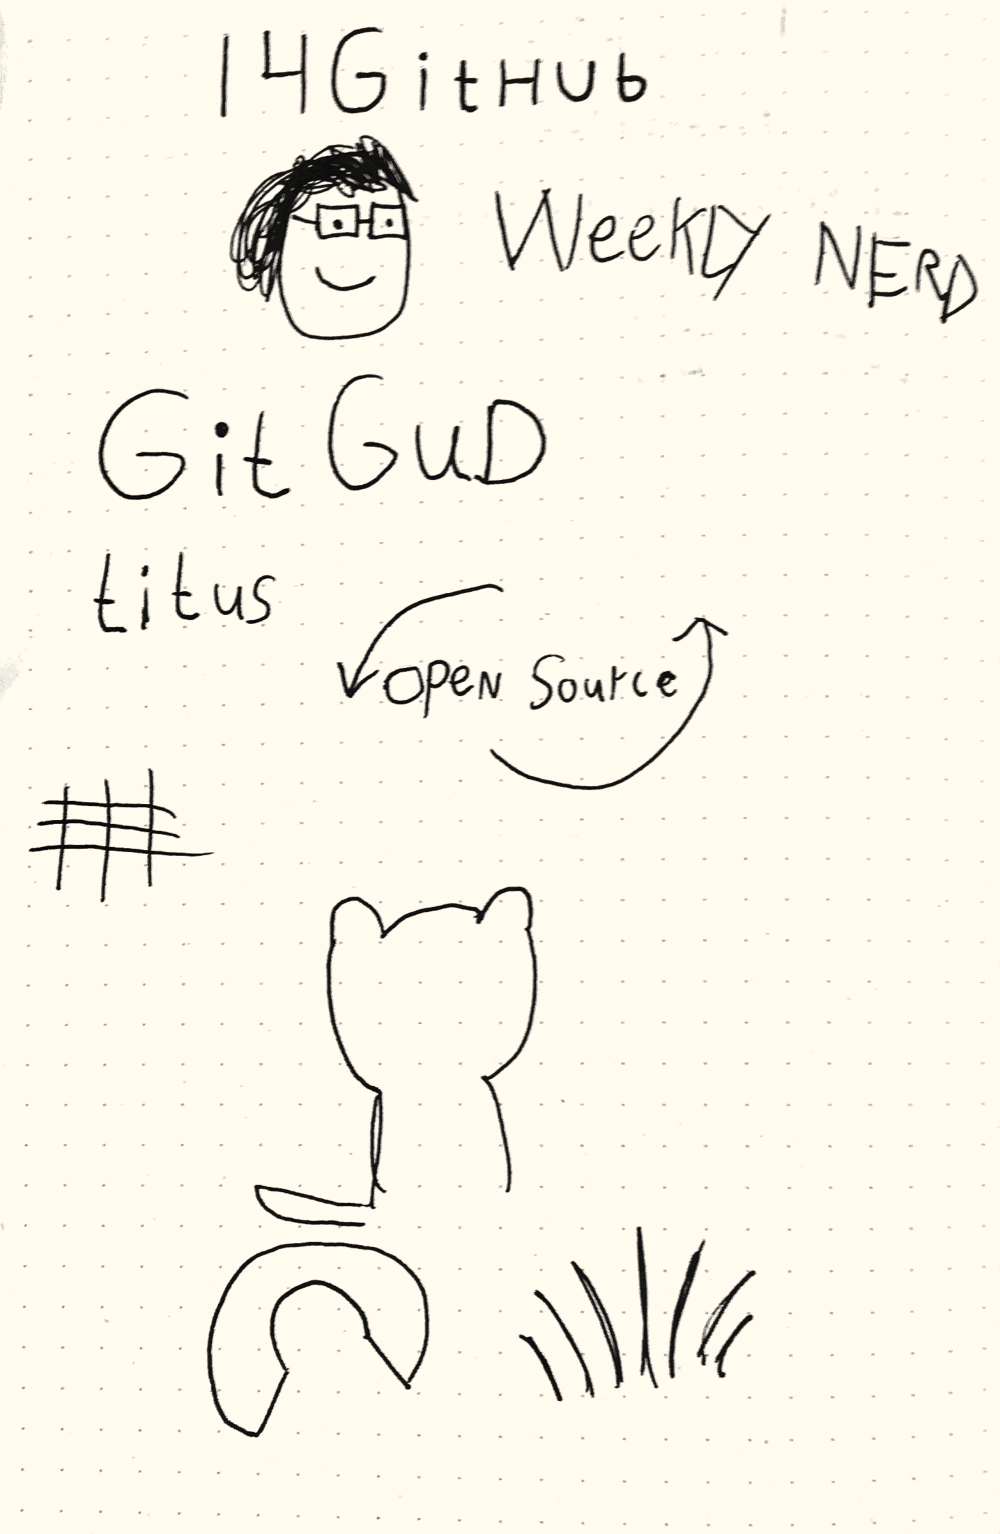 14 GitHub
Weekly NERD
Git GuD
titus
OPEN Source